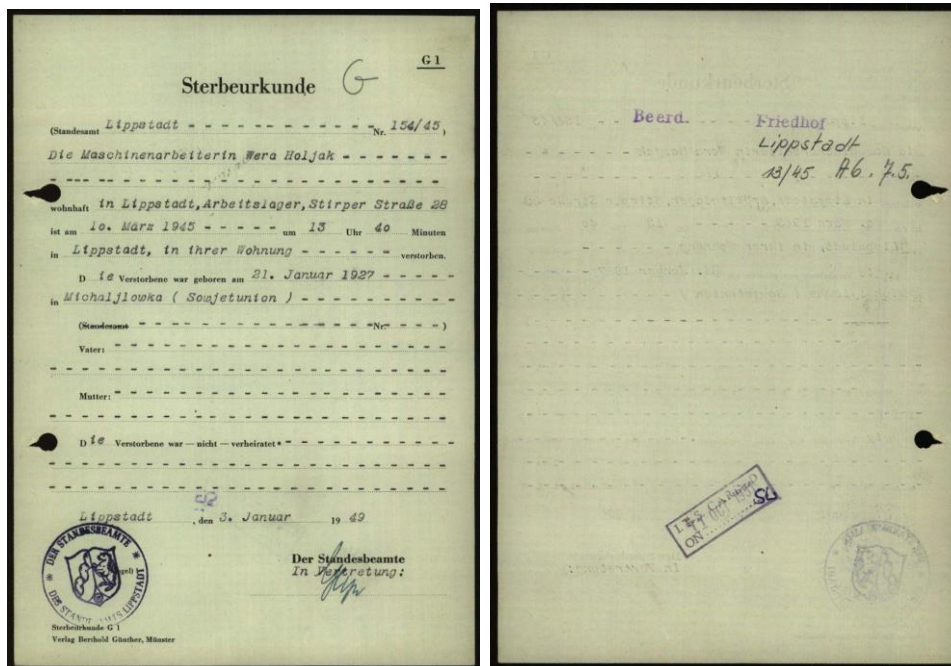 G 1
Sterbeurkunde G
(Standesamt Lippstadt - - - - - - - - - - - - Nr. 154/45)
Die Maschinenarbeiterin Wera Holjak - - - - - - -
wohnhaft in Lippstadt, Arbeitslager, Stirper Straße 28
ist am 10. März 1945 - - - - - um 13 Uhr 40 Minuten
in Lippstadt, in ihrer Wohnung - - - - - - verstorben.
D ie Verstorbene war geboren am 21. Januar 1927 - - - - -
in Michaljlowka ( Sowjetunion ) - - - - - - - - -
(Standesamt - - - - - - - - - - - - - Nr. - - - )
Vater: - - - - - - - - - - - - - - - - - - -
Mutter: - - - - - - - - - - - - - - - - - - -
D ie Verstorbene war — nicht — verheiratet - - - - - - - - - -
Lippstadt, den 3. Januar 1949
DER STANDESBEAMTE
DES STANDESAMTES LIPPSTADT
Der Standesbeamte
In Vertretung:
Sterbeurkunde G 1
Verlag Berthold Günther, Münster
Beerd. Friedhof
Lippstadt
13/45 Ab. 7.5.
I.T.S. CARDED
ON